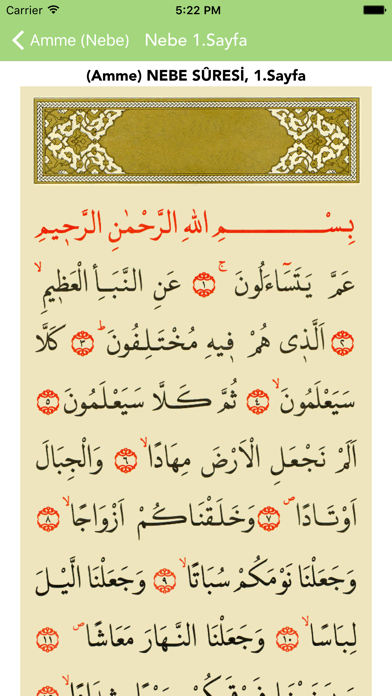 Carrier 5:22 PM
Amme (Nebe) Nebe 1.Sayfa
(Amme) NEBE SÛRESİ, 1.Sayfa
بِسْــــــــمِ اللهِ الرَّحْمٰنِ الرَّحٖيمِ
عَمَّ يَتَسَٓاءَلُونَۚ ﴿١﴾ عَنِ النَّبَأِ الْعَظٖيمِۙ
﴿٢﴾ اَلَّذٖى هُمْ فٖيهِ مُخْتَلِفُونَؕ ﴿٣﴾ كَلَّا
سَيَعْلَمُونَۙ ﴿٤﴾ ثُمَّ كَلَّا سَيَعْلَمُونَ ﴿٥﴾
اَلَمْ نَجْعَلِ الْاَرْضَ مِهَادًاۙ ﴿٦﴾ وَالْجِبَالَ
اَوْتَادًاۖ ﴿٧﴾ وَخَلَقْنَاكُمْ اَزْوَاجًاۙ ﴿٨﴾
وَجَعَلْنَا نَوْمَكُمْ سُبَاتًاۙ ﴿٩﴾ وَجَعَلْنَا الَّيْلَ
لِبَاسًاۙ ﴿١٠﴾ وَجَعَلْنَا النَّهَارَ مَعَاشًاۖ ﴿١١﴾